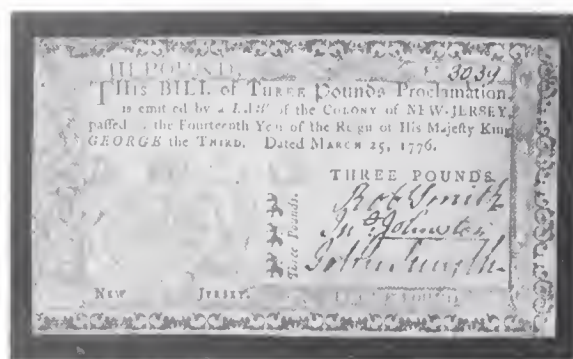 III POUND 3039
THIS BILL of THREE Pounds Proclamation,
is emitted by a LAW of the COLONY of NEW-JERSEY,
passed the Fourteenth Year of the Reign of His Majesty King
GEORGE the THIRD. Dated MARCH 25, 1776.
THREE POUNDS.
Three Pounds.
Rob Smith
Jno Johnston
John Smyth
NEW JERSEY.